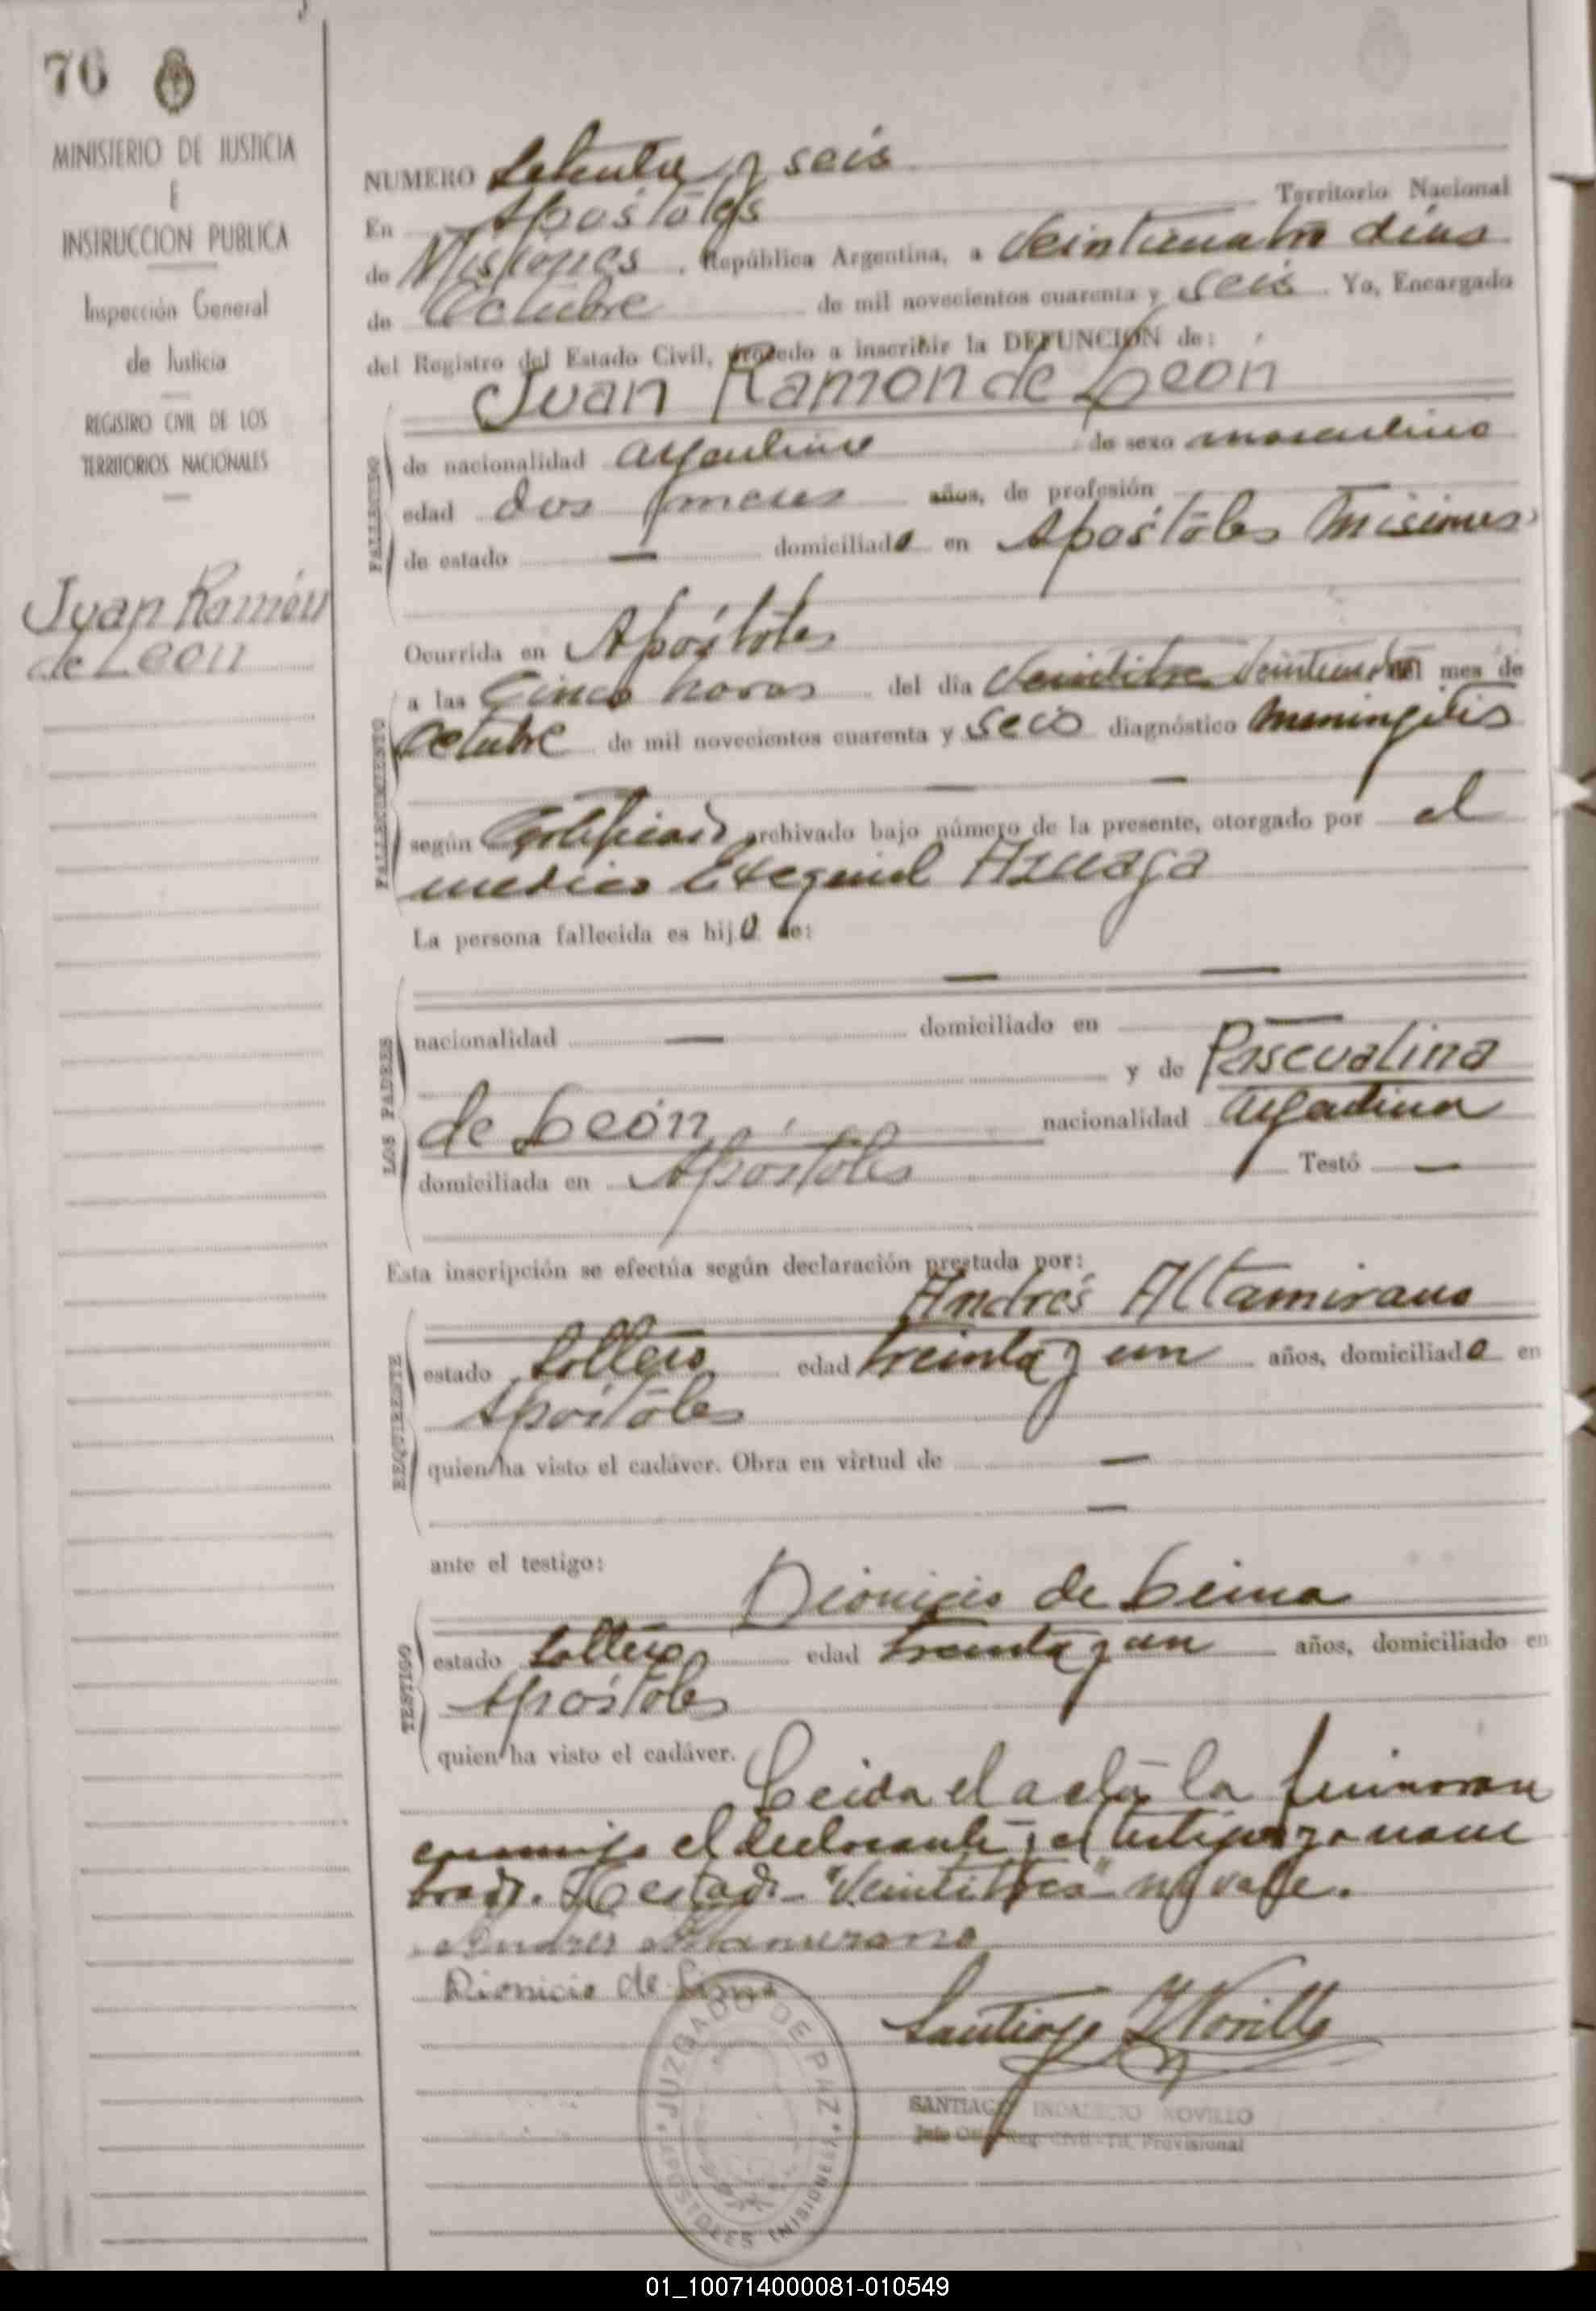 76
MINISTERIO DE JUSTICIA
E
INSTRUCCION PUBLICA
Inspección General
de Justicia
REGISTRO CIVIL DE LOS
TERRITORIOS NACIONALES
Juan Ramón
de Leon
NUMERO Setenta y seis
En Apóstoles Territorio Nacional
de Misiones, República Argentina, a veinticuatro días
de Octubre de mil novecientos cuarenta y seis. Yo, Encargado
del Registro del Estado Civil, procedo a inscribir la DEFUNCION de:
Juan Ramon de Leon
FALLECIDO
de nacionalidad argentino de sexo masculino
edad dos meses años, de profesión
de estado — domiciliado en Apóstoles Misiones
FALLECIMIENTO
Ocurrida en Apóstoles
a las Cinco horas del día Veintitres Veinticuatro del mes de
Octubre de mil novecientos cuarenta y seis diagnóstico meningitis
según Certificado archivado bajo número de la presente, otorgado por el
medico Exequiel Azuaga
La persona fallecida es hijo de:
LOS PADRES
nacionalidad — domiciliado en —
y de Pascualina
de León nacionalidad argentina
domiciliada en Apóstoles Testó —
Esta inscripción se efectúa según declaración prestada por:
Andrés Altamirano
REQUIRENTE
estado soltero edad treinta y un años, domiciliado en
Apóstoles
quien ha visto el cadáver. Obra en virtud de —
ante el testigo:
Dionicio de Lima
TESTIGO
estado soltero edad treinta y un años, domiciliado en
Apóstoles
quien ha visto el cadáver.
Leida el acta la firmaron
conmigo el declarante y el testigo ya nom
brado. Testado "Veintitres" no vale.
Andres Altamirano
Dionicio de Lima
Santiago I Novillo
SANTIAGO INDALECIO NOVILLO
Jefe Of. Reg. Civil - Tit. Provisional
JUZGADO DE PAZ
APOSTOLES (MISIONES)
01_100714000081-010549